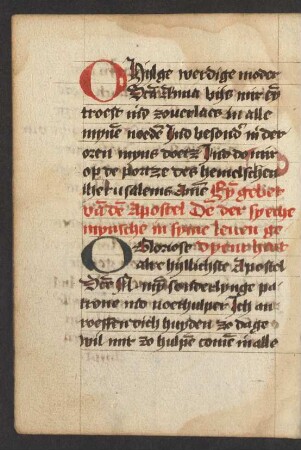 O Hylge werdige moder
Sent Anna biss mir ey
troest und zouerlaes in alle
mynē noedē Und besond in der
oren myns doetz Und do mir
op de portze des hemelschen
iherusalems Amē Ey gebet
vā dē Apostel De der syeche
mynsche in syme leuen ge
dyent hait
O Glorioser
alre hyllichste Apostel
Sēte N mynsch sonderlynge pa
trone und noethulper Ich an
roeffen dich huyden zo dage
wil mir zo hulpe comē in alle